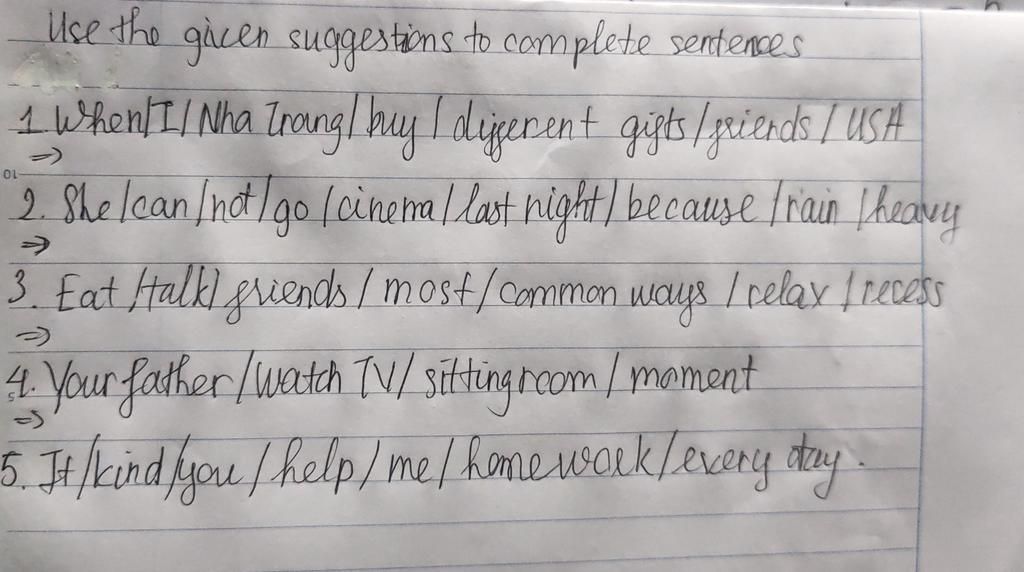 Use the given suggestions to complete sentences
1. When/I/Nha Trang/buy/different gifts/friends/USA
=>
2. She/can/not/go/cinema/last night/because/rain/heavy
=>
3. Eat/talk/friends/most/common ways/relax/recess
=>
4. Your father/watch TV/sitting room/moment
=>
5. It/kind/you/help/me/homework/every day.